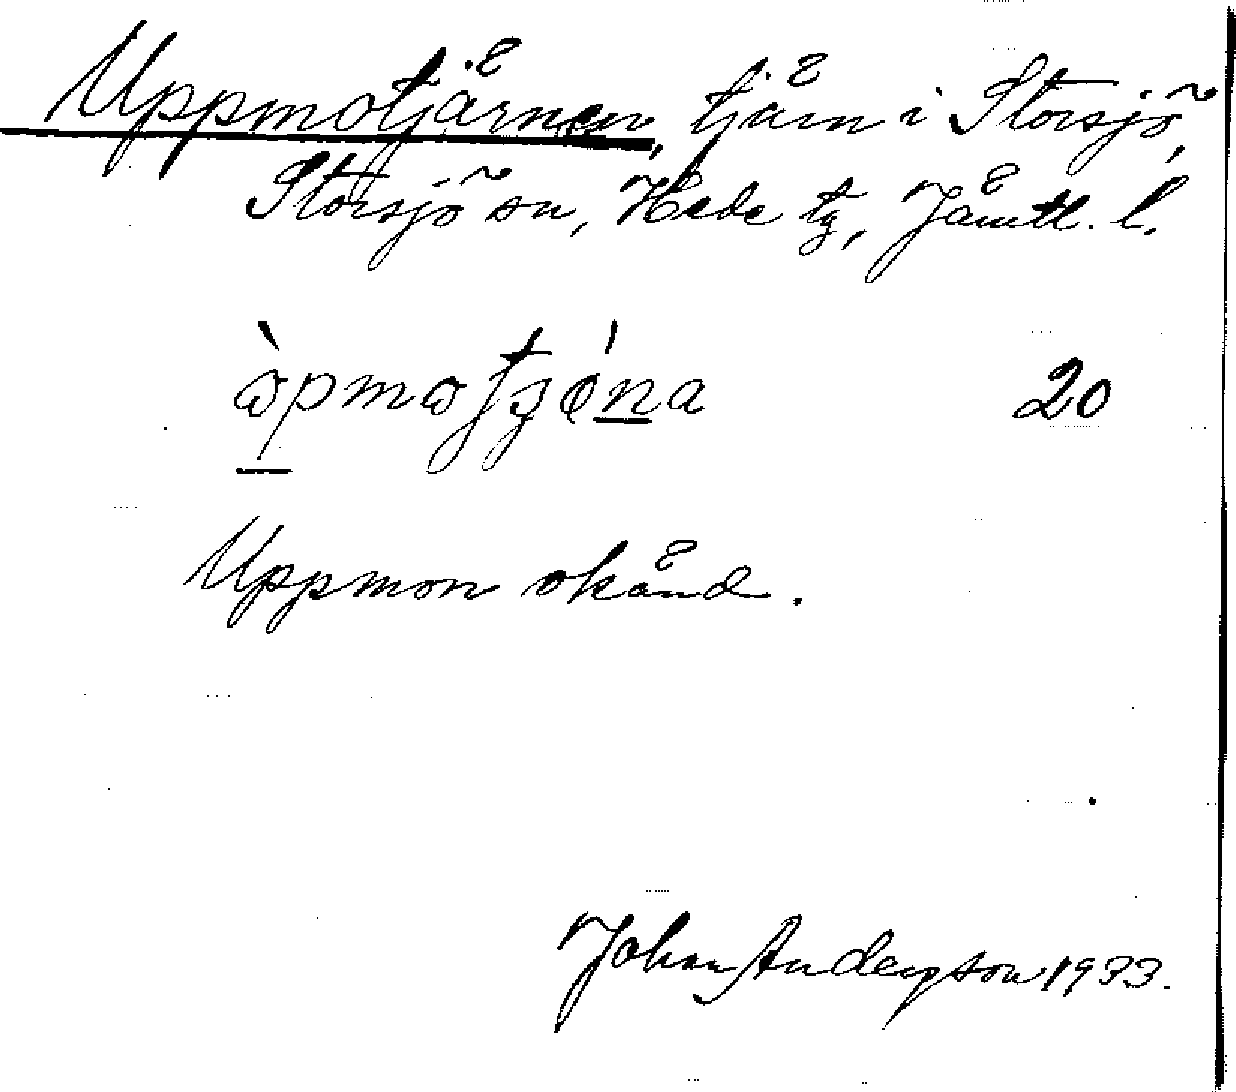 Uppmotjärnen, tjärn i Storsjö,
Storsjö sn, Hede tg, Jämtl. l.
20
Uppmon okänd.
Johan Anderson 1933.